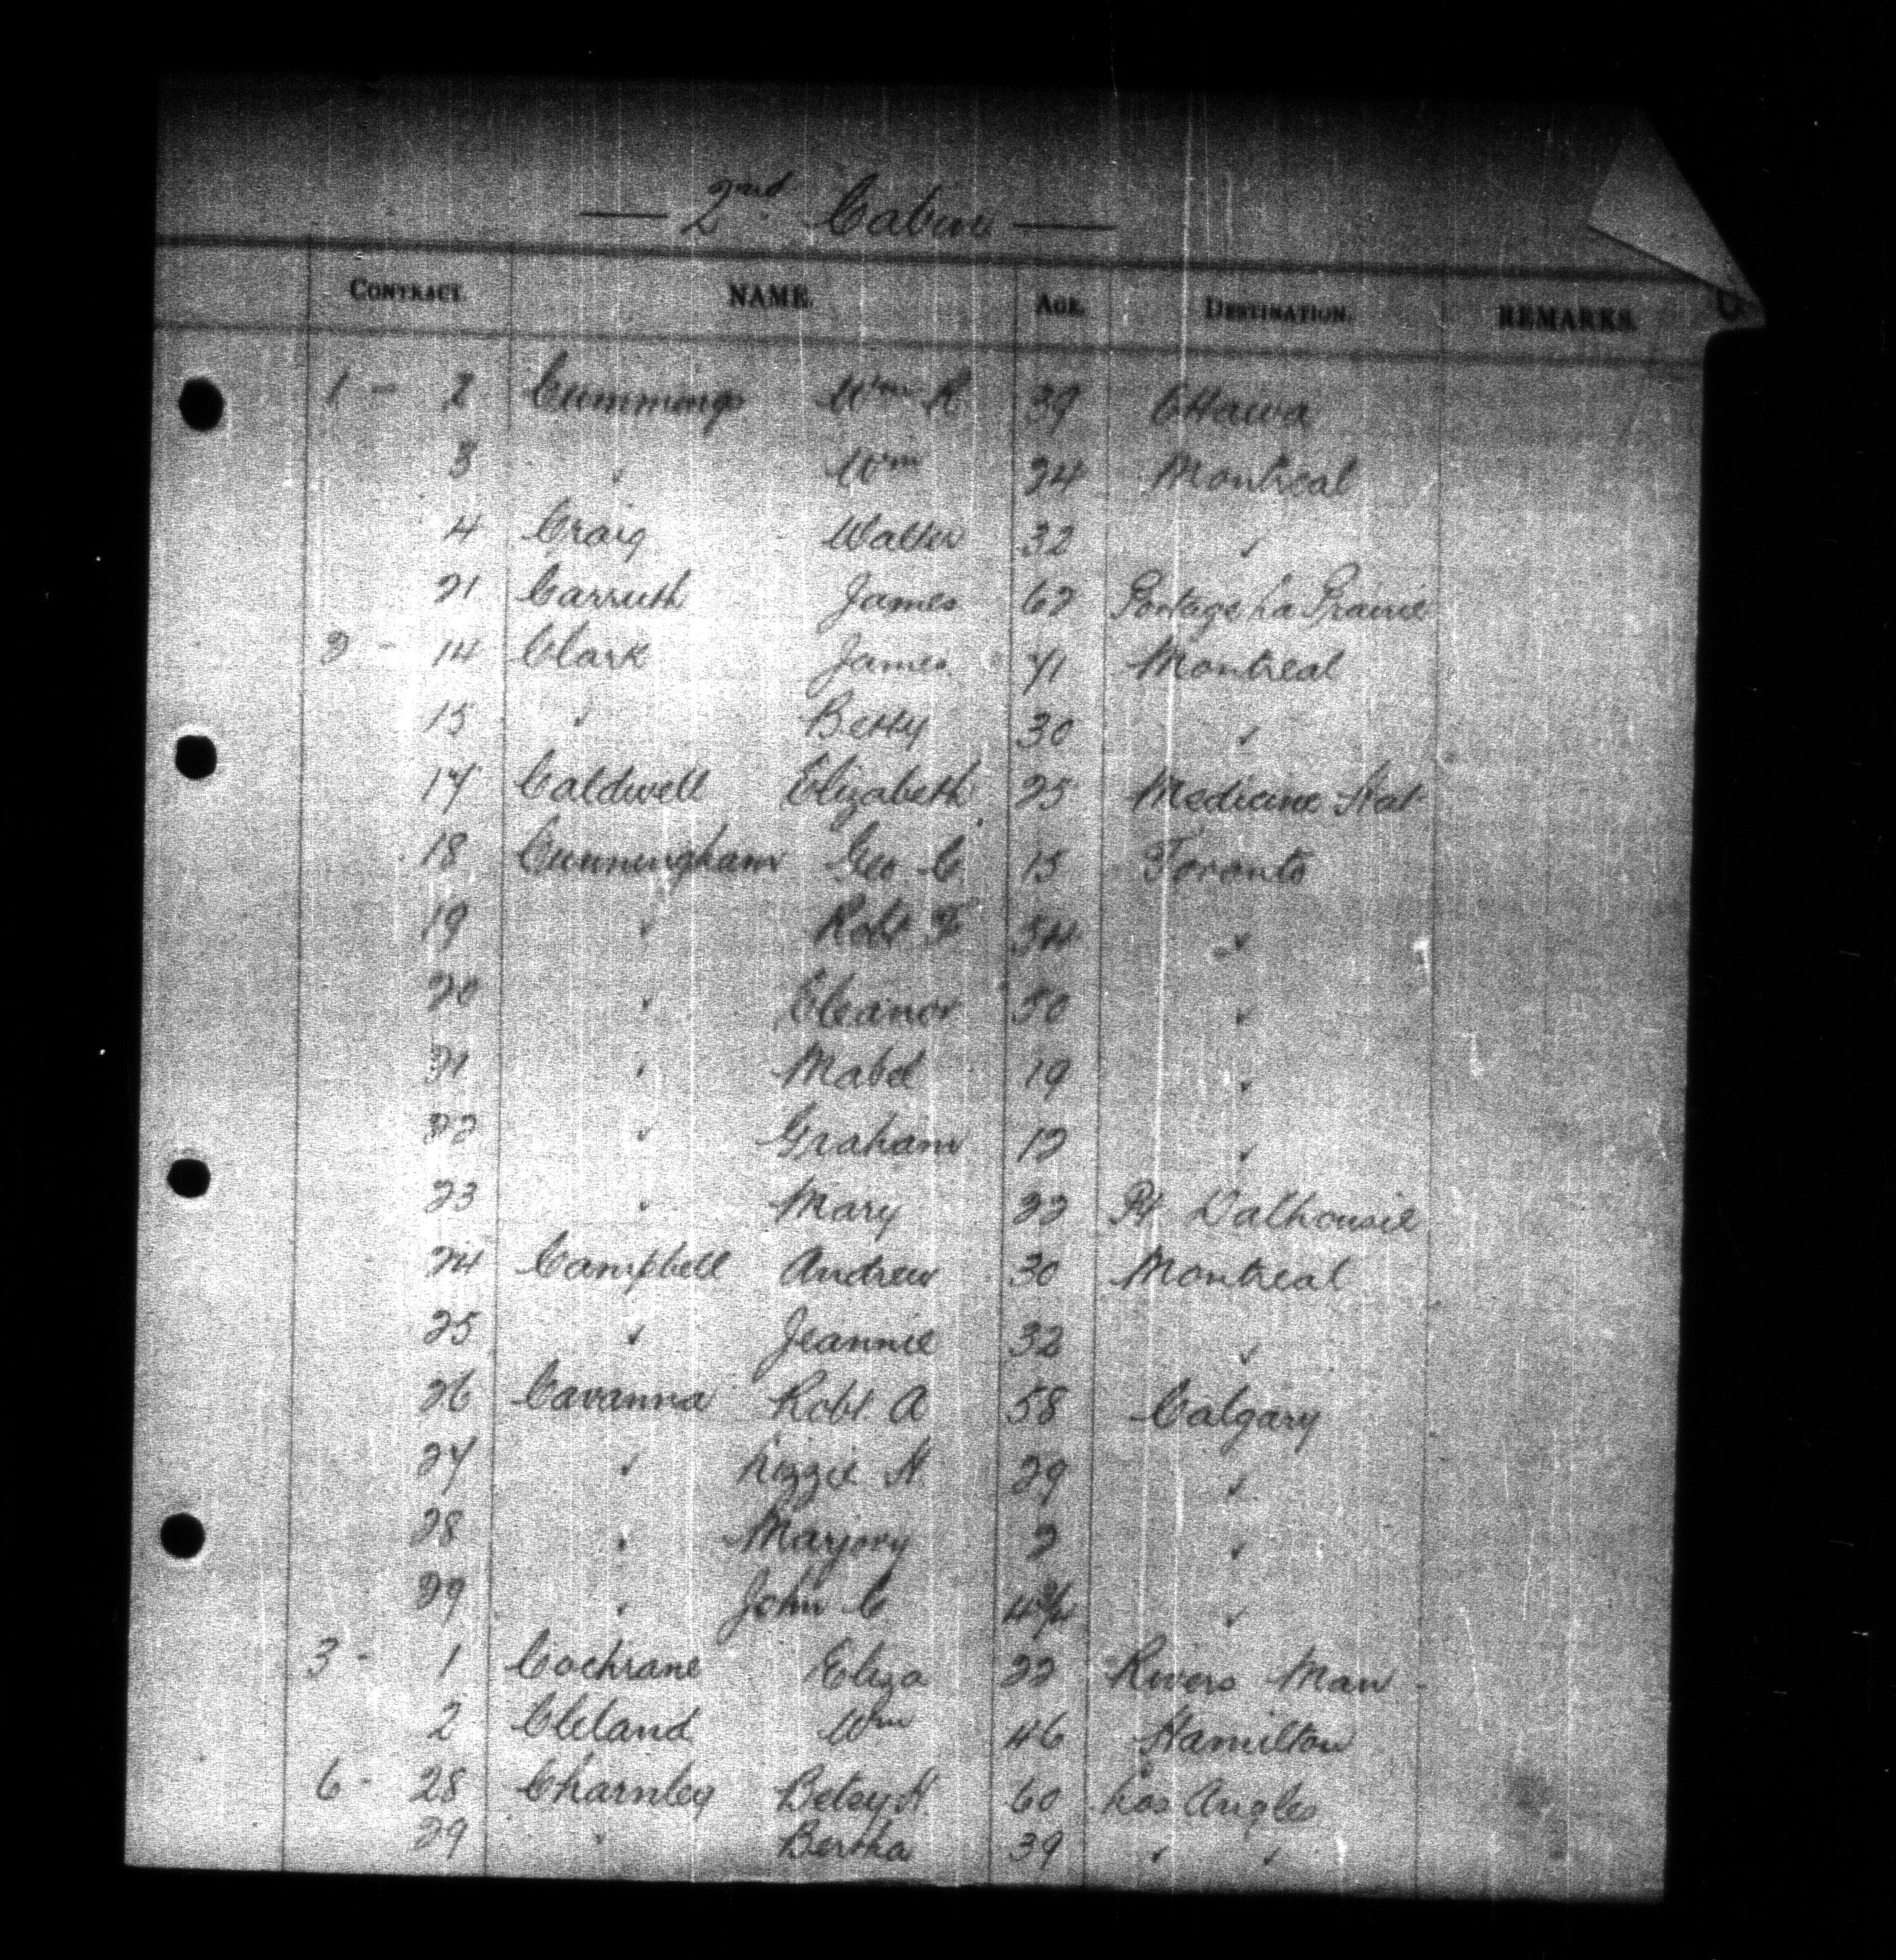 — 2nd Cabin —
CONTRACT. NAME. AGE. DESTINATION. REMARKS.
1 - 2 Cummings Wm R 39 Ottawa
3 " Wm 24 Montreal
4 Craig Walter 32 "
21 Carruth James 62 Portage La Prairie
2 - 14 Clark James Montreal
15 " Betty 30 "
17 Caldwell Elizabeth 25 Medicine Hat
18 Cunningham Geo C. 15 Toronto
19 " Robt F 54 "
20 " Eleanor 50 "
21 " Mabel 19 "
22 " Graham 12 "
23 " Mary 22 Pt Dalhousie
24 Campbell Andrew 30 Montreal
25 " Jeannie 32 "
26 Cavanna Robt A 58 Calgary
27 " Lizzie H. 29 "
28 " Marjory 2 "
29 " John C "
3 - 1 Cochrane Eliza 22 Rivers Man
2 Cleland Wm 46 Hamilton
6 - 28 Charnley Betsy H 60 Los Angles
29 " Bertha 39 " "